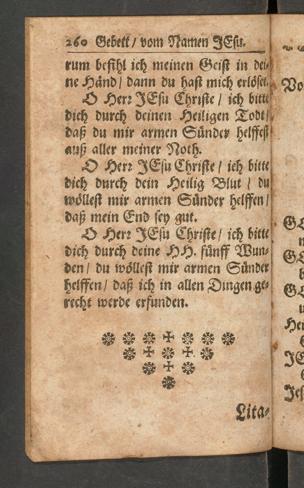 260 Gebett / vom Namen JEsu.
rum befihl ich meinen Geist in dei-
ne Händ / dann du hast mich erlöset.
O Herr JEsu Christe / ich bitte
dich durch deinen Heiligen Todt /
daß du mir armen Sünder helffest
auß aller meiner Noth.
O Herr JEsu Christe / ich bitte
dich durch dein Heilig Blut / du
wöllest mir armen Sünder helffen /
daß mein End sey gut.
O Herr JEsu Christe / ich bitte
dich durch deine HH. fünff Wun-
den / du wöllest mir armen Sünder
helffen / daß ich in allen Dingen ge-
recht werde erfunden.
Lita-